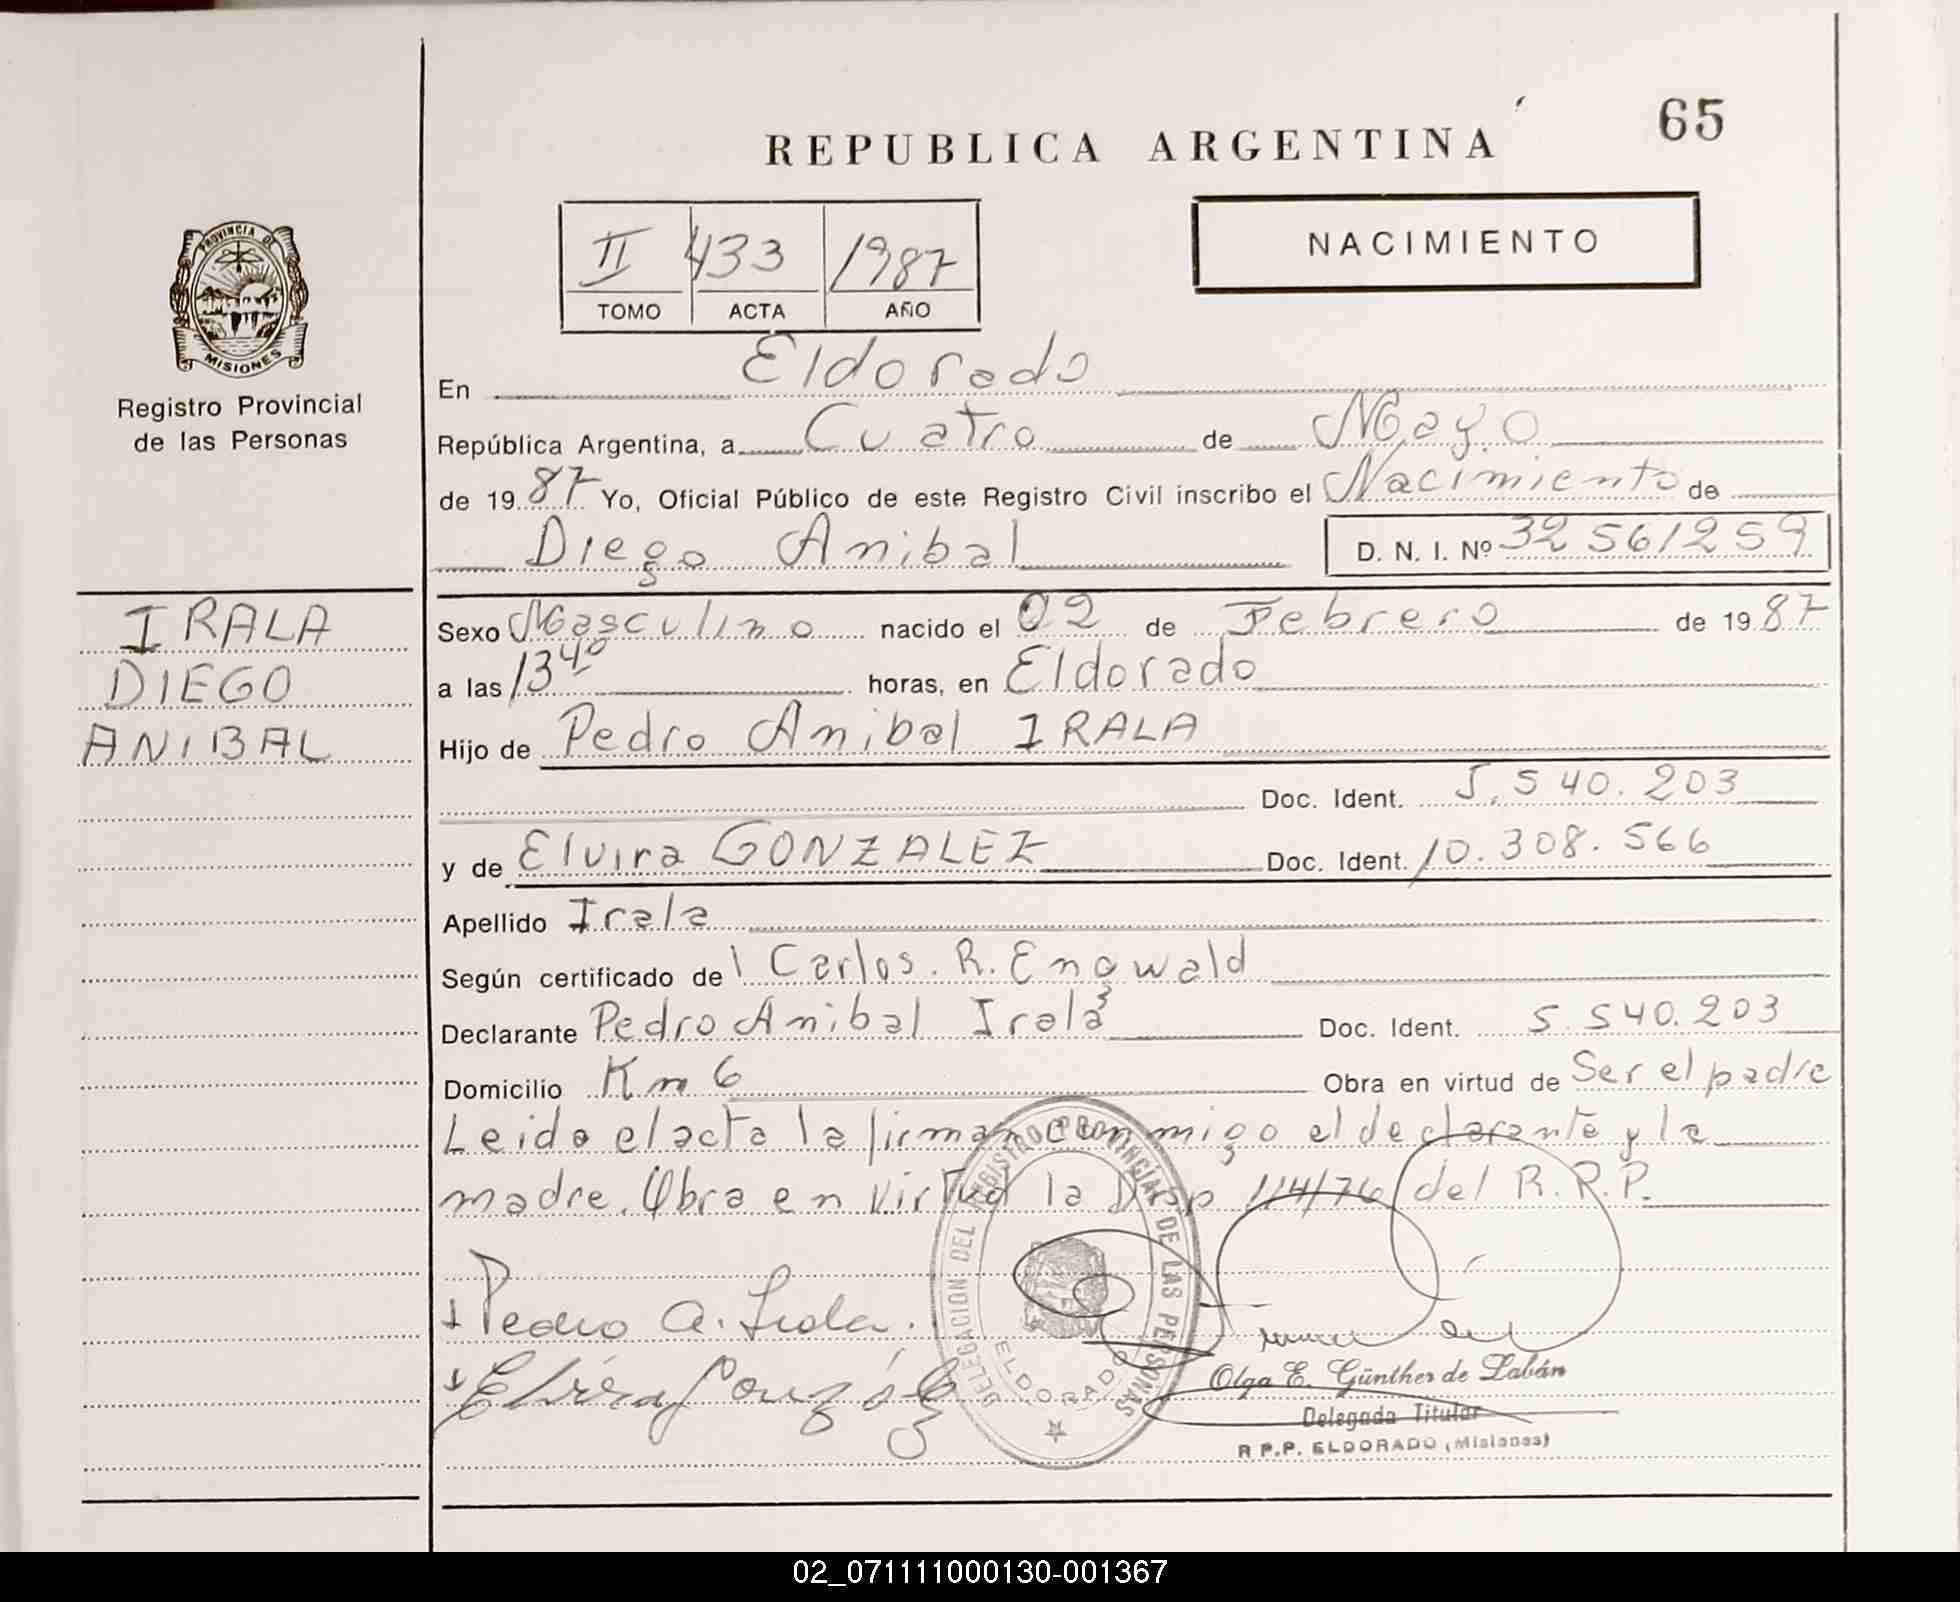 65
REPUBLICA ARGENTINA
II 433 1987
TOMO ACTA AÑO
NACIMIENTO
PROVINCIA DE
MISIONES
Registro Provincial
de las Personas
En Eldorado
República Argentina, a Cuatro de Mayo
de 19 87 Yo, Oficial Público de este Registro Civil inscribo el Nacimiento de
Diego Anibal D. N. I. Nº 32 561259
IRALA
DIEGO
ANIBAL
Sexo Masculino nacido el 02 de Febrero de 19 87
a las 13 40 horas, en Eldorado
Hijo de Pedro Anibal IRALA
Doc. Ident. 5.540.203
y de Elvira GONZALEZ Doc. Ident. 10.308.566
Apellido Irala
Según certificado de Carlos. R. Enowald
Declarante Pedro Anibal Irala Doc. Ident. 5.540.203
Domicilio Km 6 Obra en virtud de Ser el padre
Leida el acta la firman conmigo el declarante y la
madre. Obra en virtud la Disp 114/76 del R.P.P.
Pedro A. Irala.
Elvira Gonzáles
DELEGACION DEL REGISTRO PROVINCIAL DE LAS PERSONAS
ELDORADO
Olga E. Günther de Labán
Delegada Titular
R P.P. ELDORADO (Misiones)
02_071111000130-001367